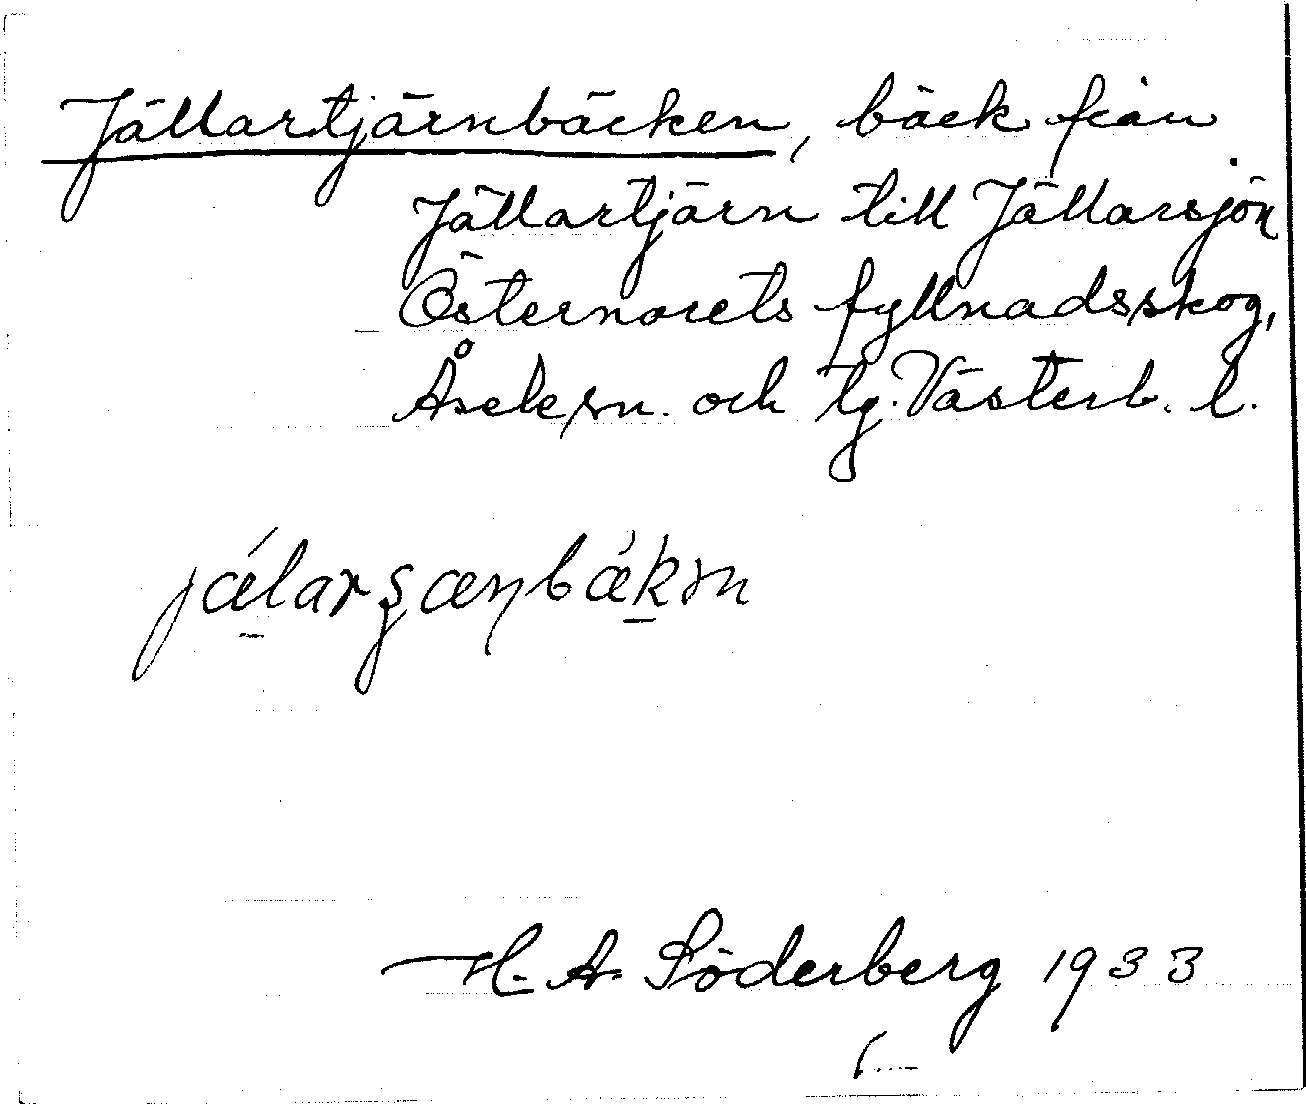 Jällartjärnbäcken, bäck från
Jällartjärn till Jällarsjön
Östernorets fyllnadsskog,
Åsele sn. och tg. Västerb. l.
jælarʂæɳbækən
H. A. Söderberg 1933